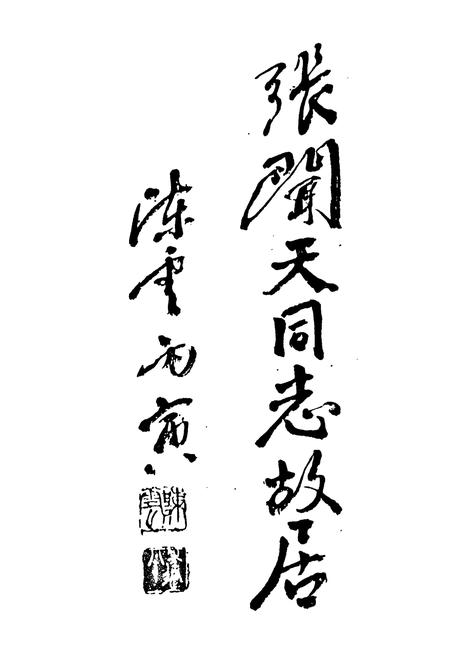 張聞天同志故居
陳雲丙寅
陳雲